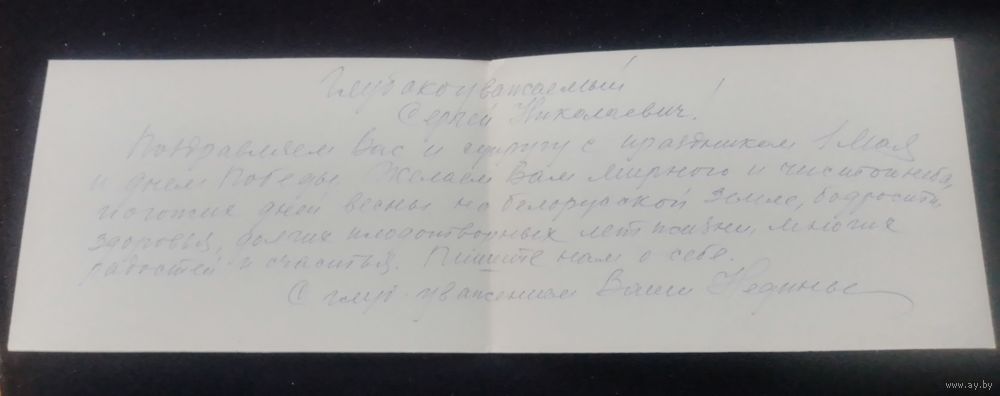 Глубокоуважаемый
Сергей Николаевич!
Поздравляем Вас и супругу с праздником 1 Мая
и днем Победы. Желаем Вам мирного и чистого неба,
погожих дней весны на белорусской земле, бодрости,
здоровья, долгих плодотворных лет жизни, многих
радостей и счастья. Пишите нам о себе.
С глуб. уважением Ваши
www.ay.by